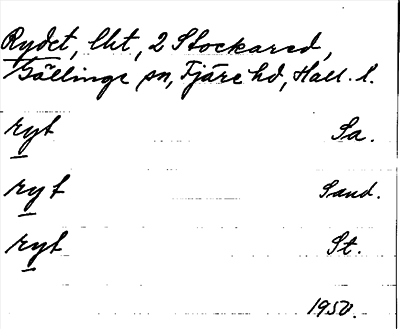 Rydet, lht, 2 Stockared,
Gällinge sn, Fjäre hd, Hall. l.
ryt Sa.
ryt Sand.
ryt St.
1950.